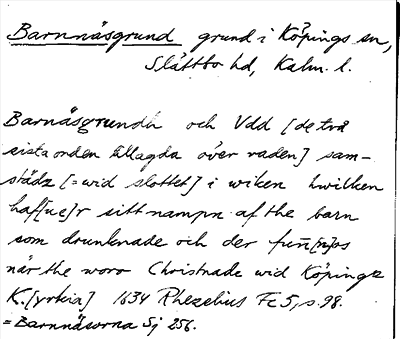 Barnnäsgrund grund i Köpings sn,
Slättbo hd, Kalm. l.
Barnäsgrundh och Vdd [de två
sista orden tillagda över raden] sam-
städz [=wid slottet] i wiken hwilken
haf[ue]r sitt nampn af the barn
som drunknade och der fun[n]os
när the woro Christnade wid Köpings
K.[yrkia] 1634 Rhezelius Fc 5, s. 98.
= Barnnäsorna Sj 256.